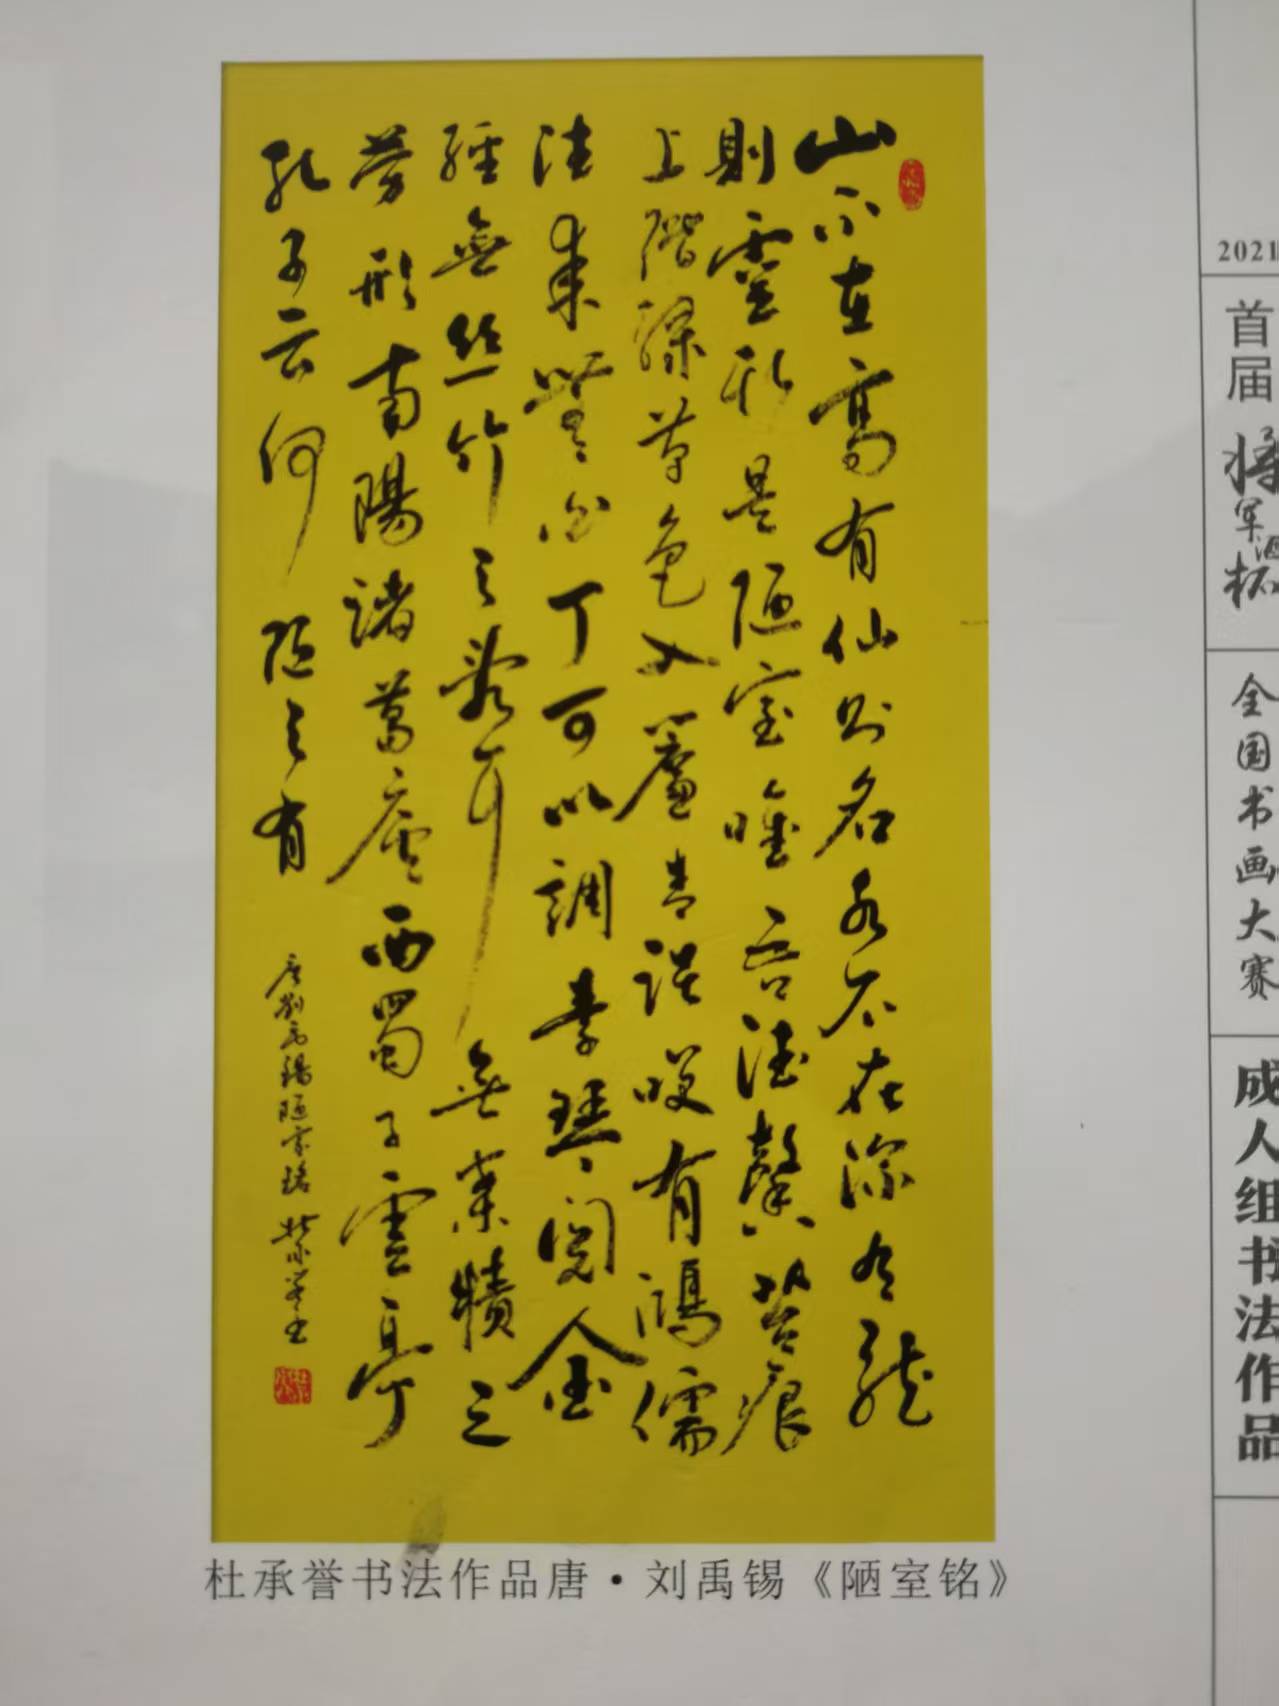 山不在高有仙则名水不在深有龍
則靈斯是陋室唯吾德馨苔痕
上階綠草色入簾青談咲有鴻儒
往来無白丁可以調素琴閱金
經無丝竹之亂耳無案牘之
劳形南陽諸葛廬西蜀子雲亭
孔子云何陋之有
唐劉禹錫陋室銘 杜承誉书
杜承誉书法作品唐·刘禹锡《陋室铭》
2021
首届
将军酒杯
全国书画大赛
成人组书法作品